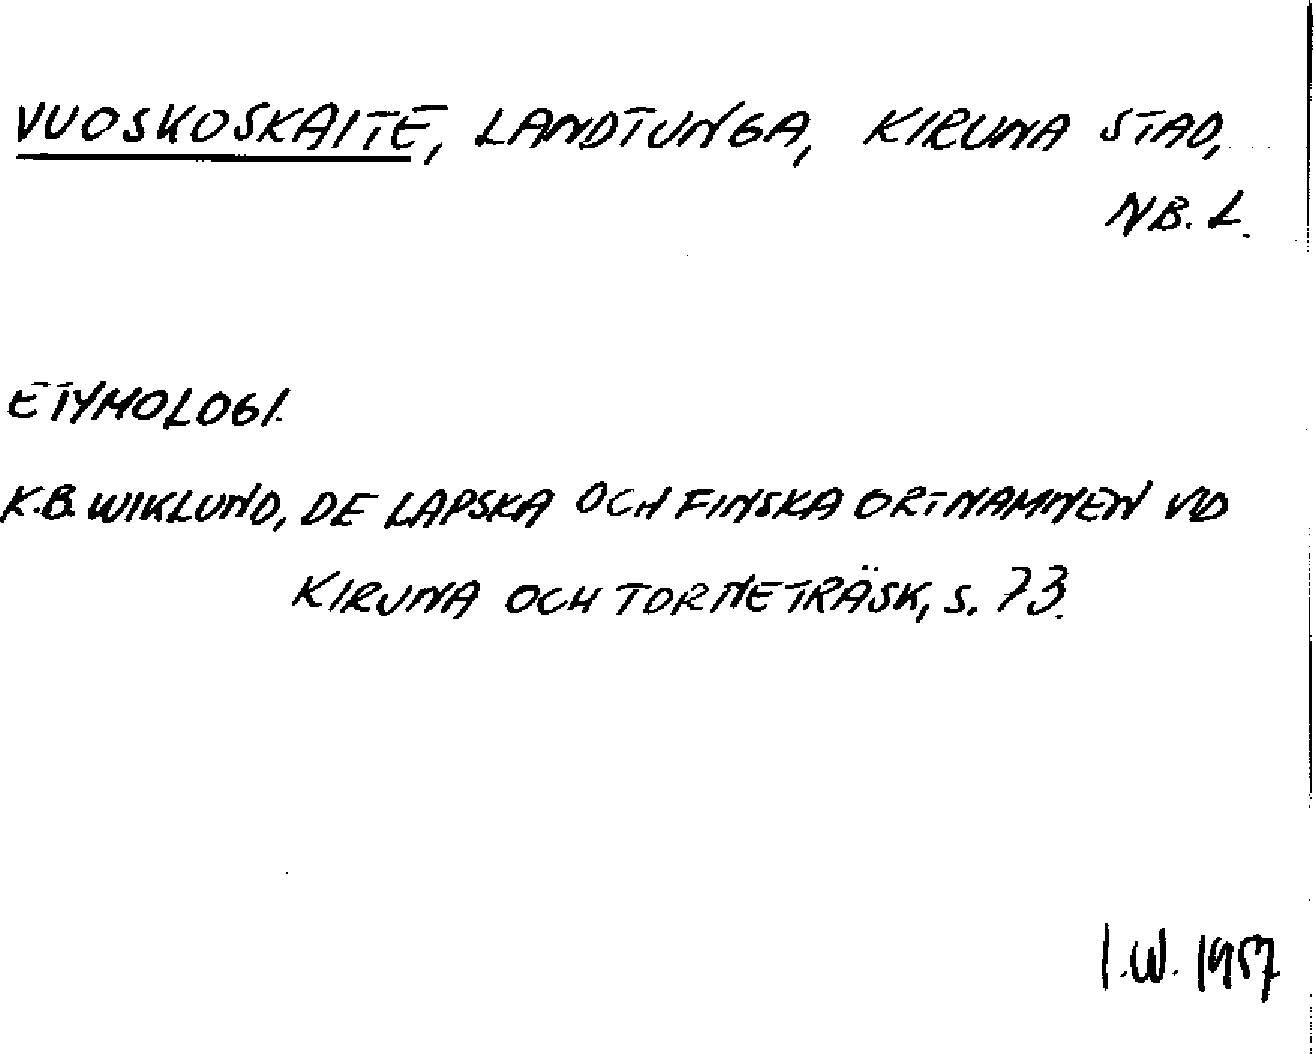 VUOSKOSKAITE, LANDTUNGA, KIRUNA STAD,
NB. L.
ETYMOLOGI.
K.B. WIKLUND, DE LAPSKA OCH FINSKA ORTNAMNEN VID
KIRUNA OCH TORNETRÄSK, S. 73.
I.W. 1957